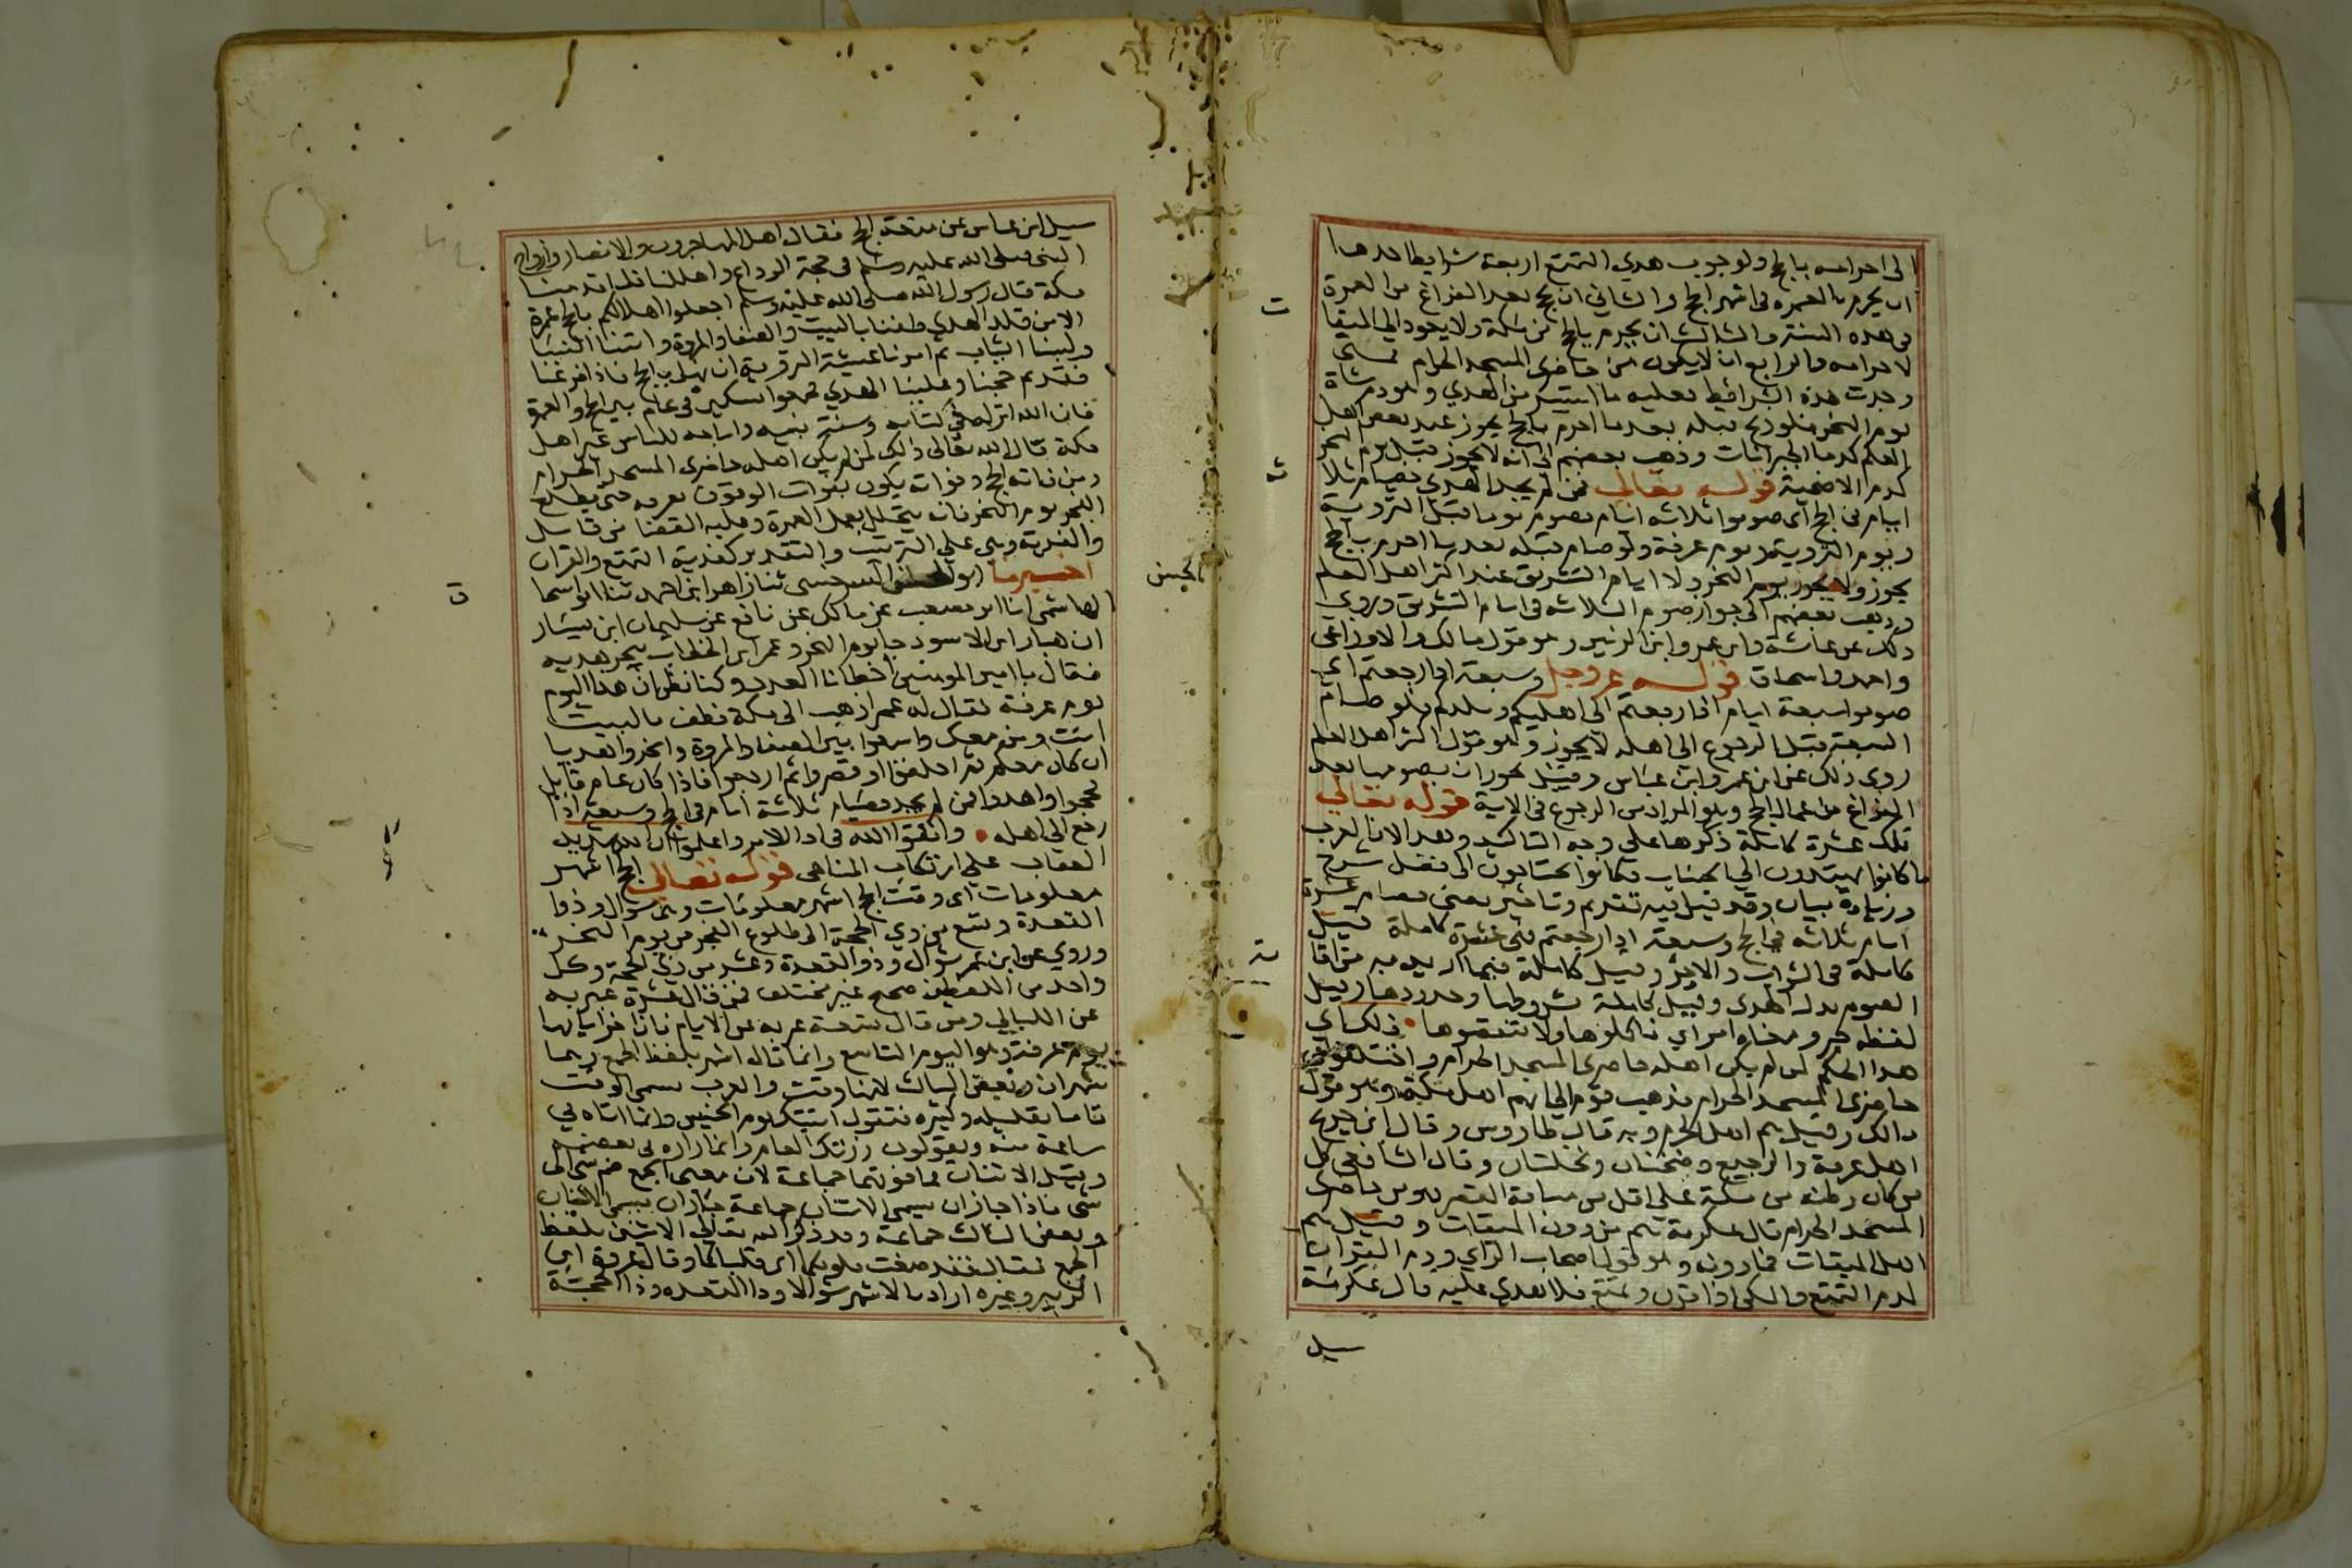 الى احرامه بالحج ولوجوب هدي التمتع اربعة شرايط احدها
ان يحرم بالعمره في اشهر الحج والثاني ان يحج بعد الفراغ من العمرة
في هذه السنة والثالث ان يحرم بالحج من مكة ولا يعود الى الميقا
لاحرامه والرابع ان لا يكون من حاضرى المسجد الحرام فمتى
وجدت هذه الشرائط فعليه ما استيسر من الهدي وهو دم شاة
يوم النحر فلو ذبح قبله بعد ما احرم بالحج يجوز عند بعض اهل
العلم كدما الجبرانات وذهب بعضهم الى انه لا يجوز قبل يوم النحر
كدم الاضحية قوله تعالى فمن لم يجد الهدي فصيام ثلا
ايام في الحج اى صوموا ثلاثه ايام يصوم يوما قبل التروية
ويوم التروية ويوم عرفة ولو صام قبله بعد ما احرم بالحج
يجوز ولا يجوز يوم النحر ولا ايام التشريق عند اكثر اهل العلم
وذهب بعضهم الى جواز صوم الثلاثه في ايام التشريق وروي
ذلك عن عائشة وابن عمر وابن الزبير وهو قول مالك والاوزاعى
واحمد واسحاق قوله عز وجل وسبعة اذا رجعتم اي
صوموا سبعة ايام اذا رجعتم الى اهليكم وبلدكم فلو صام
السبعة قبل الرجوع الي اهله لا يجوز وهو قول اكثر اهل العلم
روى ذلك عن ابن عمر وابن عباس وقيل يجوز ان يصومها بعد
الفراغ من اعمال الحج وهو المراد من الرجوع في الاية قوله تعالى
تلك عشرة كاملة ذكرها على وجه التاكيد وهذا لان العرب
ما كانوا يهتدون الي الحساب وكانوا يحتاجون الى فضل شرح
وزيادة بيان وقد قيل فيه تقديم وتاخير يعنى فصيام عشرة
ايام ثلاثه في الحج وسبعة اذا رجعتم فهى عشرة كاملة قيل
كاملة في الثواب والاجر وقيل كاملة فيما اريد به من اقا
الصوم بدل الهدى وقيل كاملة بشروطها وحدودها وقيل
لفظه خبر ومعناه امر اي فاكملوها ولا تنقصوها ذلك اي
هذا الحكم لمن لم يكن اهله حاضرى المسجد الحرام واختلفوا في
حاضرى المسجد الحرام فذهب قوم الى انهم اهل مكة وهو قول
مالك وقيل هم اهل الحرم وبه قال طاروس وقال ابن جريج
اهل عرفة والرجيع وضجنان ونخلتان وقال الشافعى كل
من كان وطنه من مكة على اقل من مسافة القصر فهو من حاضرى
المسجد الحرام قال عكرمة هم من دون الميقات وقيل هم
اهل الميقات فما دونه وهو قول اصحاب الراي ودم القران
كدم التمتع والمكى اذا قرن وتمتع فلا هدي عليه قال عكرمة
سيل
سيل ابن عباس عن متعة الحج فقال اهل المهاجرون والانصار وازواج
النبي صلى الله عليه وسلم في حجة الوداع واهللنا فلما قدمنا
مكة قال رسول الله صلى الله عليه وسلم اجعلوا اهلالكم بالحج عمرة
الا من قلد الهدي طفنا بالبيت والصفا والمروة واتينا النسا
ولبسنا الثياب ثم امرنا عشية التروية ان نهل بالحج فاذا فرغنا
فقد تم حجنا وعلينا الهدي فجمعوا نسكين في عام بين الحج والعمرة
فان الله انزله في كتابه وسنة نبيه واباحه للناس غير اهل
مكة قال الله تعالى ذلك لمن لم يكن اهله حاضرى المسجد الحرام
ومن فاته الحج وفواته يكون بفوات الوقوف بعرفه حتى يطلع
الفجر يوم النحر فانه يتحلل بعمل العمرة وعليه القضا من قابل
والفدية وهى على الترتيب والتقدير كفدية التمتع والقران
اخبرنا ابو الحسن السرخسى ثنا زاهر ابن احمد ثنا ابو اسحا
الهاشمى انا ابو مصعب عن مالك عن نافع عن سليمان ابن يسار
ان هبار ابن الاسود جا يوم النحر وعمر ابن الخطاب ينحر هديه
فقال يا امير المومنين اخطانا العدد وكنا نظن ان هذا اليوم
يوم عرفة فقال له عمر اذهب الى مكة فطف بالبيت
انت ومن معك واسعوا بين الصفا والمروة وانحروا هديا
ان كان معكم ثم احلقوا او قصروا ثم ارجعوا فاذا كان عام قابل
فحجوا واهدوا فمن لم يجد فصيام ثلاثة ايام في الحج وسبعة اذا
رجع الي اهله واتقوا الله في ادا الاوامر واعلموا ان الله شديد
العقاب على ارتكاب المناهى قوله تعالى الحج اشهر
معلومات اى وقت الحج اشهر معلومات وهى شوال وذوا
القعدة وتسع من ذي الحجة الى طلوع الفجر من يوم النحر
وروي عن ابن عمر شوال وذوالقعدة وعشر من ذي الحجة وكل
واحد من اللفظين صحيح غير مختلف فمن قال عشرة عبر به
عن الليالي ومن قال تسعة عبر به عن الايام فان اخر ايامها
يوم عرفة وهو اليوم التاسع وانما قال اشهر بلفظ الجمع وهما
شهران وبعض الثالث لانها وقت والعرب تسمى الوقت
تاما بقليله وكثيره فتقول اتيتك يوم الخميس وانما اتاه في
ساعة منه ويقولون زرتك العام وانما زاره في بعضه
وقيل الاثنان فما فوقهما جماعة لان معنى الجمع ضم شى الى
شى فاذا جاز ان يسمى الاثنان جماعة جاز ان يسمى الاثنان
وبعض الثالث جماعة وقد ذكر الله تعالى الاثنين بلفظ
الجمع فقال فقد صغت قلوبكما اى قلباكما وقال عروة ابن
الزبير وغيره اراد بالاشهر شوالا وذا القعده وذا الحجة
الحسن